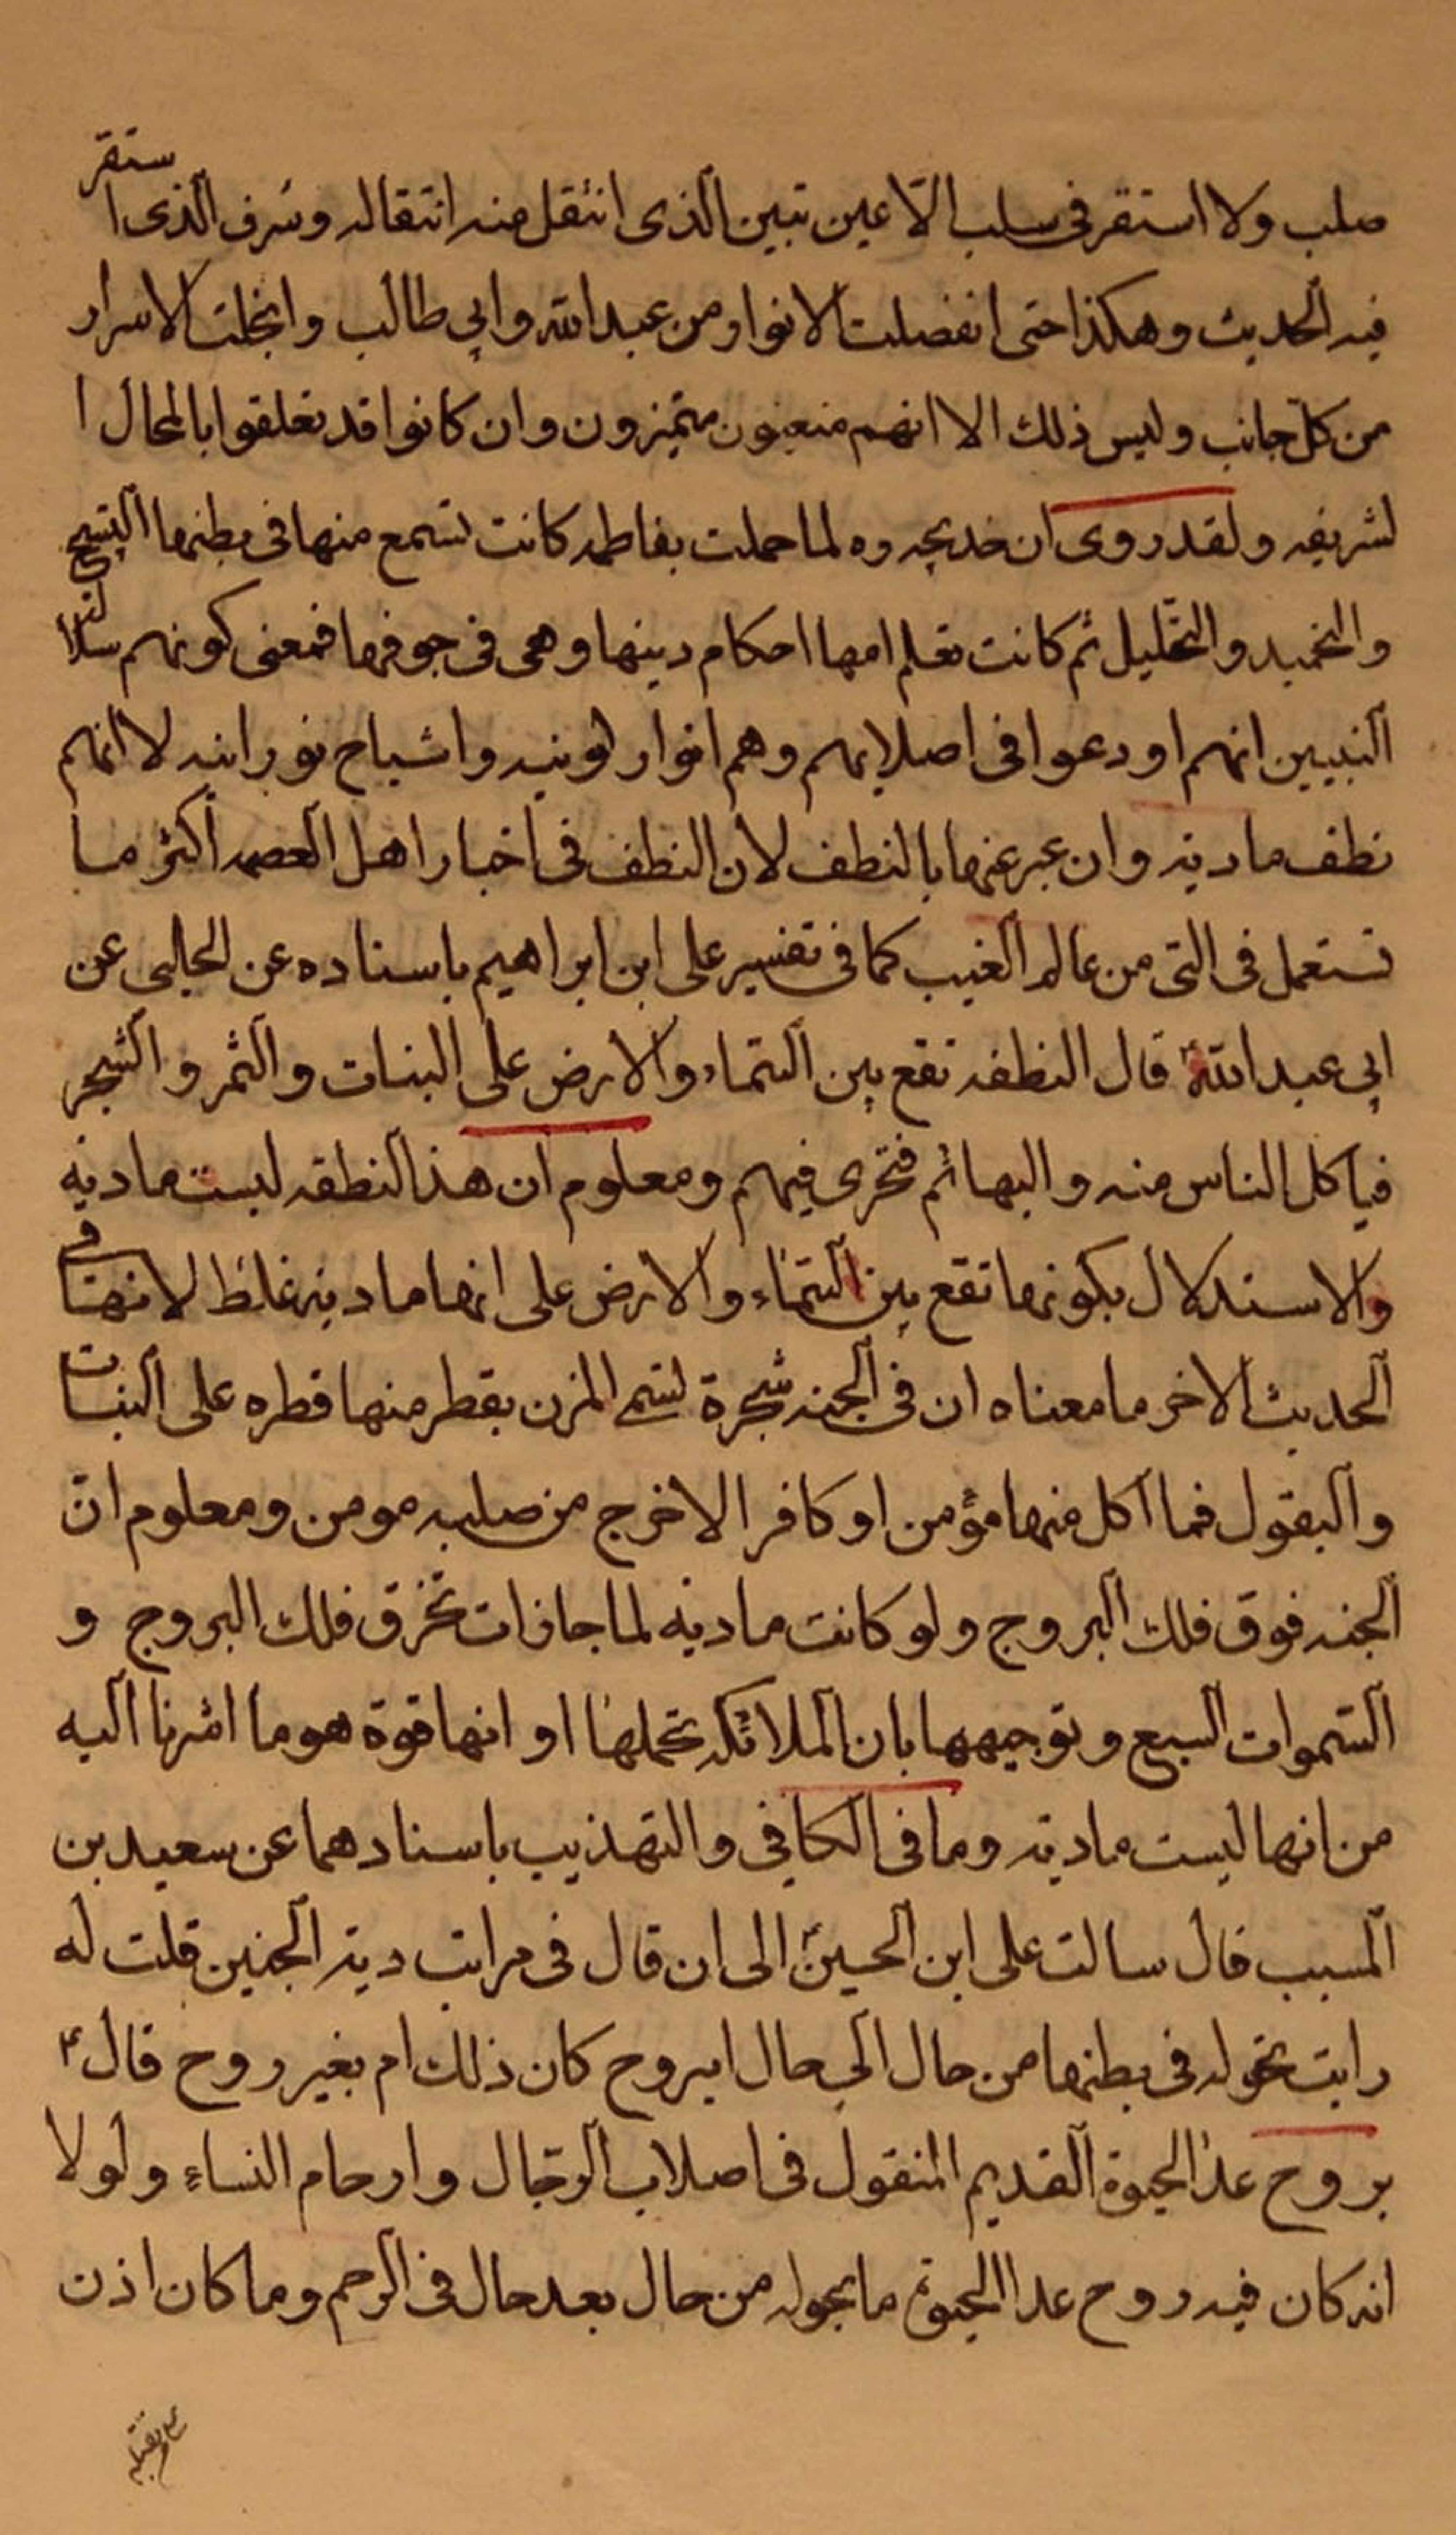 صلب ولا استقر فى سلب الّا عين تبين الذى انئقل منه انتقاله وشرف الذى استقر
فيه الحديث وهكذا حتى انفصلت الانوار من عبد الله وابي طالب وانجلت الاسرار
من كل جانب وليس ذلك الا انهم متعينون متميزون وان كانوا قد تعلقوا بالمحال ا
لشريفه ولقد روى ان خديجه ره لما حملت بفاطمه كانت تسمع منها فى بطنها التسبيح
والتحميد والتهليل ثم كانت تعلم امها احكام دينها وهى فى جوفها فمعنى كونهم سلالة
النبيين انهم اودعوا فى اصلابهم وهم انوار كونيه واشباح نورانيه لا انهم
نطف ماديه وان عبر عنها بالنطف لان النطف فى اخبار اهل العصمه اكثر ما
تستعمل فى التى من عالم الغيب كما فى تفسير على ابن ابراهيم باسناده عن الحلبى عن
ابي عبد الله ع قال النطفه تقع بين السماء والارض على النبات والثمر والشجر
فيأكل الناس منه والبهائم فتجرى فيهم ومعلوم ان هذ النطفه ليست ماديه
والاستدلال بكونها تقع بين السماء والارض على انها ماديه غلط لانها فى
الحديث الاخر ما معناه ان فى الجنه شجرة تسمى المزن يقطر منها قطره على النبات
والبقول فما اكل منها مؤمن او كافر الا خرج من صلبه مومن ومعلوم ان
الجنه فوق فلك البروج ولو كانت ماديه لما جازت تخرق فلك البروج و
السموات السبع وتوجيهها بان الملائكه تحملها او انها قوة هو ما اشرنا اليه
من انها ليست ماديه وما فى الكافي والتهذيب باسنادهما عن سعيد بن
المسيب قال سالت على ابن الحسين ع الى ان قال فى مراتب ديه الجنين قلت له
رايت تحوله فى بطنها من حال الى حال ابروح كان ذلك ام بغير روح قال ع
بروح عدا الحيوة القديم المنقول فى اصلاب الرجال وارحام النساء ولولا
انه كان فيه روح عدا الحيوة ما تحوله من حال بعد حال فى الرحم وما كان اذن